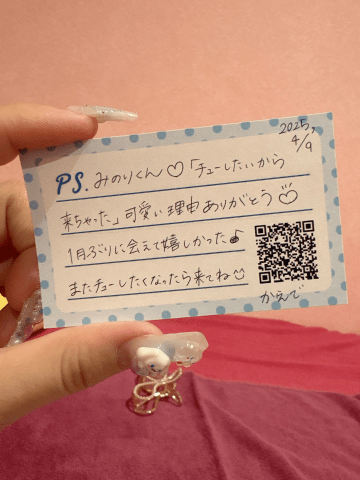 2025,
4/9
PS. みのりくん♡「チューしたいから
来ちゃった」可愛い理由ありがとう♡
1月ぶりに会えて嬉しかった♪
またチューしたくなったら来てね☺
かえで